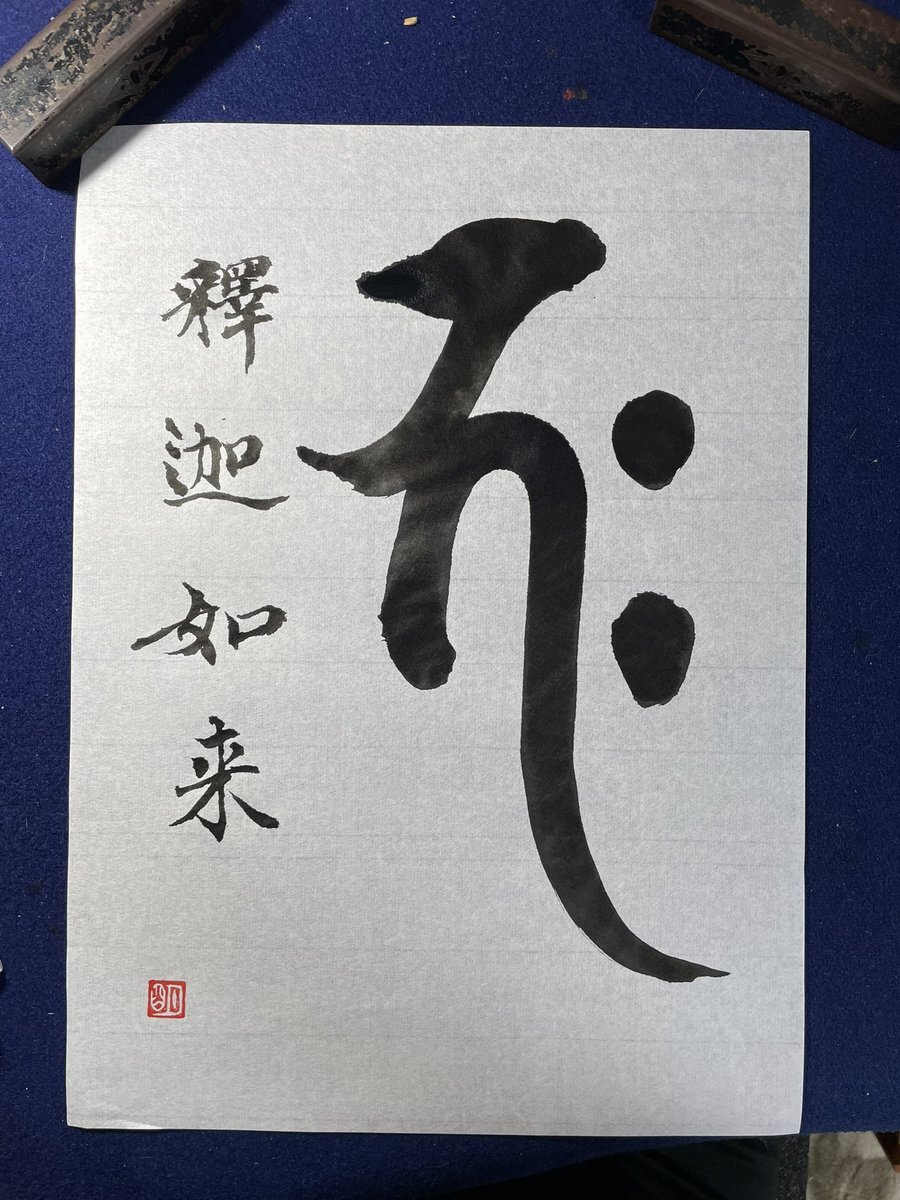 𑖥𑖾
釋迦如来